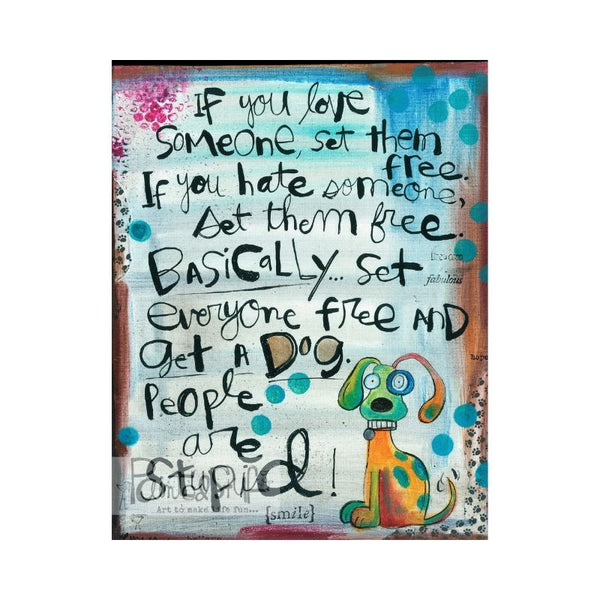 If you love
someone, set them
free.
If you hate someone,
set them free.
fabulous
BASiCALLY... set
everyone free AND
get A Dog.
hope
People
are
stupid!
Art to make life fun...
{smile}